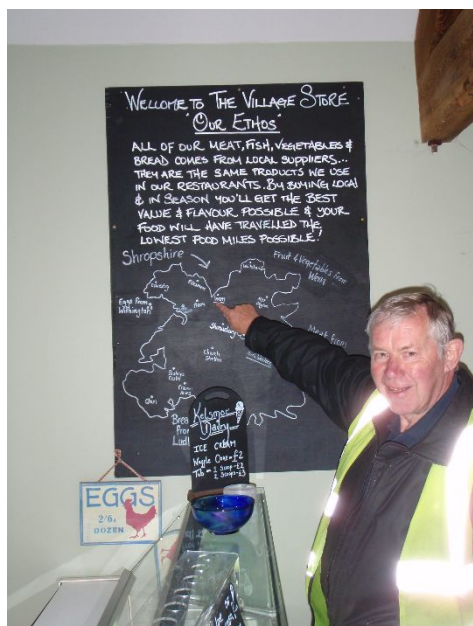 WELCOME TO THE VILLAGE STORE
"OUR ETHOS"
ALL OF OUR MEAT, FISH, VEGETABLES &
BREAD COMES FROM LOCAL SUPPLIERS...
THEY ARE THE SAME PRODUCTS WE USE
IN OUR RESTAURANTS. BY BUYING LOCAL
& IN SEASON YOU'LL GET THE BEST
VALUE & FLAVOUR POSSIBLE & YOUR
FOOD WILL HAVE TRAVELLED THE
LOWEST FOOD MILES POSSIBLE!
Shropshire
Fruit & Vegetables from
Wem
Eggs from
Whittington
Shrewsbury
Meat from
Church
Stretton
Clun
Bre
from
Ludl
Kelsmor
Dairy
ICE CREAM
Waffle Cone = £2
Tub = 1 Scoop - £2
2 Scoops - £3
EGGS
2/6D.
DOZEN